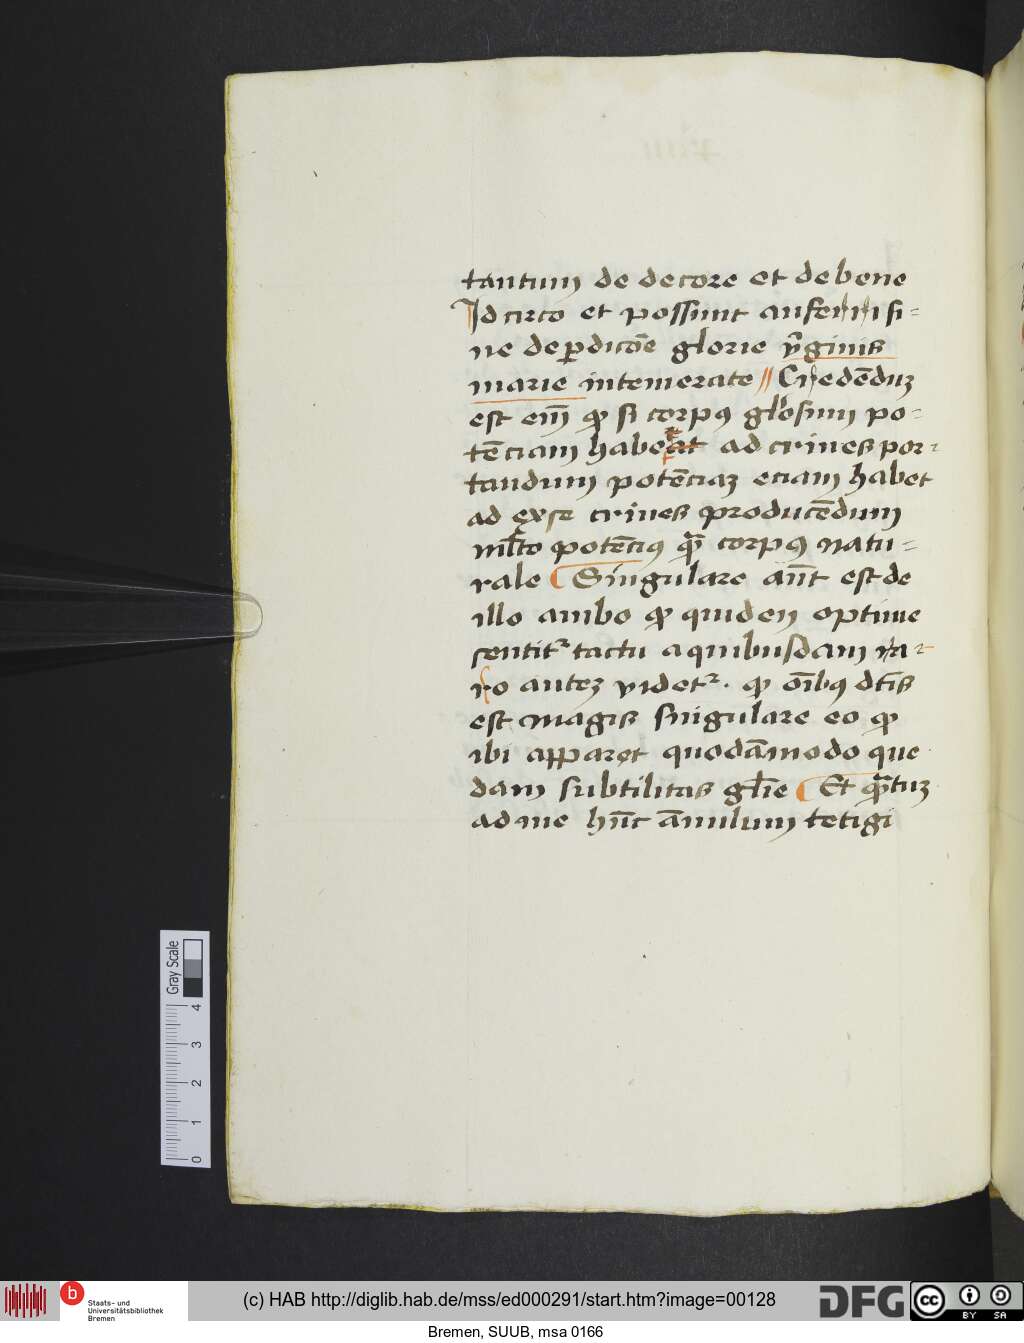 tantum de decore et de bene
Idcirco et possunt auferri si-
ne deperdicōe glorie v̄ginis
marie intemerate // Credēduz
est em̄ ꝙ si corpꝰ gl'osum po-
tēciam habet ad crines por-
tandum potēciaz eciam habet
ad exse crines producēdum
ml̄to potēciꝰ qꝫ̄ corpꝰ natu-
rale Singulare aūt est de
illo ambo ꝙ quidem optime
sentit᷑ tactu a quibusdam ra-
ro autez videt᷑. ꝙ oībꝰ dc̄is
est magis singulare eo ꝙ
ibi apparet quodāmodo que
dam subtilitas gl̄ie Et qꝫ̄tuz
ad me hūc ānulum tetigi
Gray Scale
0 1 2 3 4
b
Staats- und
Universitätsbibliothek
Bremen
(c) HAB http://diglib.hab.de/mss/ed000291/start.htm?image=00128
DFG
cc BY SA
Bremen, SUUB, msa 0166